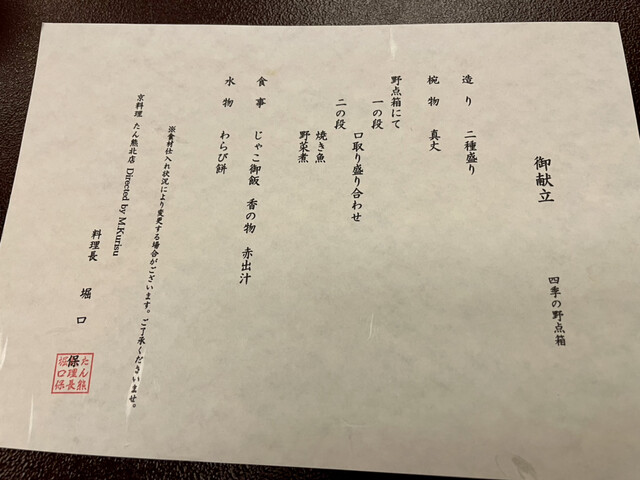 御献立
四季の野点箱
造り 二種盛り
椀物 真丈
野点箱にて
一の段
口取り盛り合わせ
二の段
焼き魚
野菜煮
食事 じゃこ御飯 香の物 赤出汁
水物 わらび餅
※食材仕入れ状況により変更する場合がございます。ご了承くださいませ。
京料理 たん熊北店 Directed by M.Kurisu
料理長 堀口
たん熊
保理長
堀口保